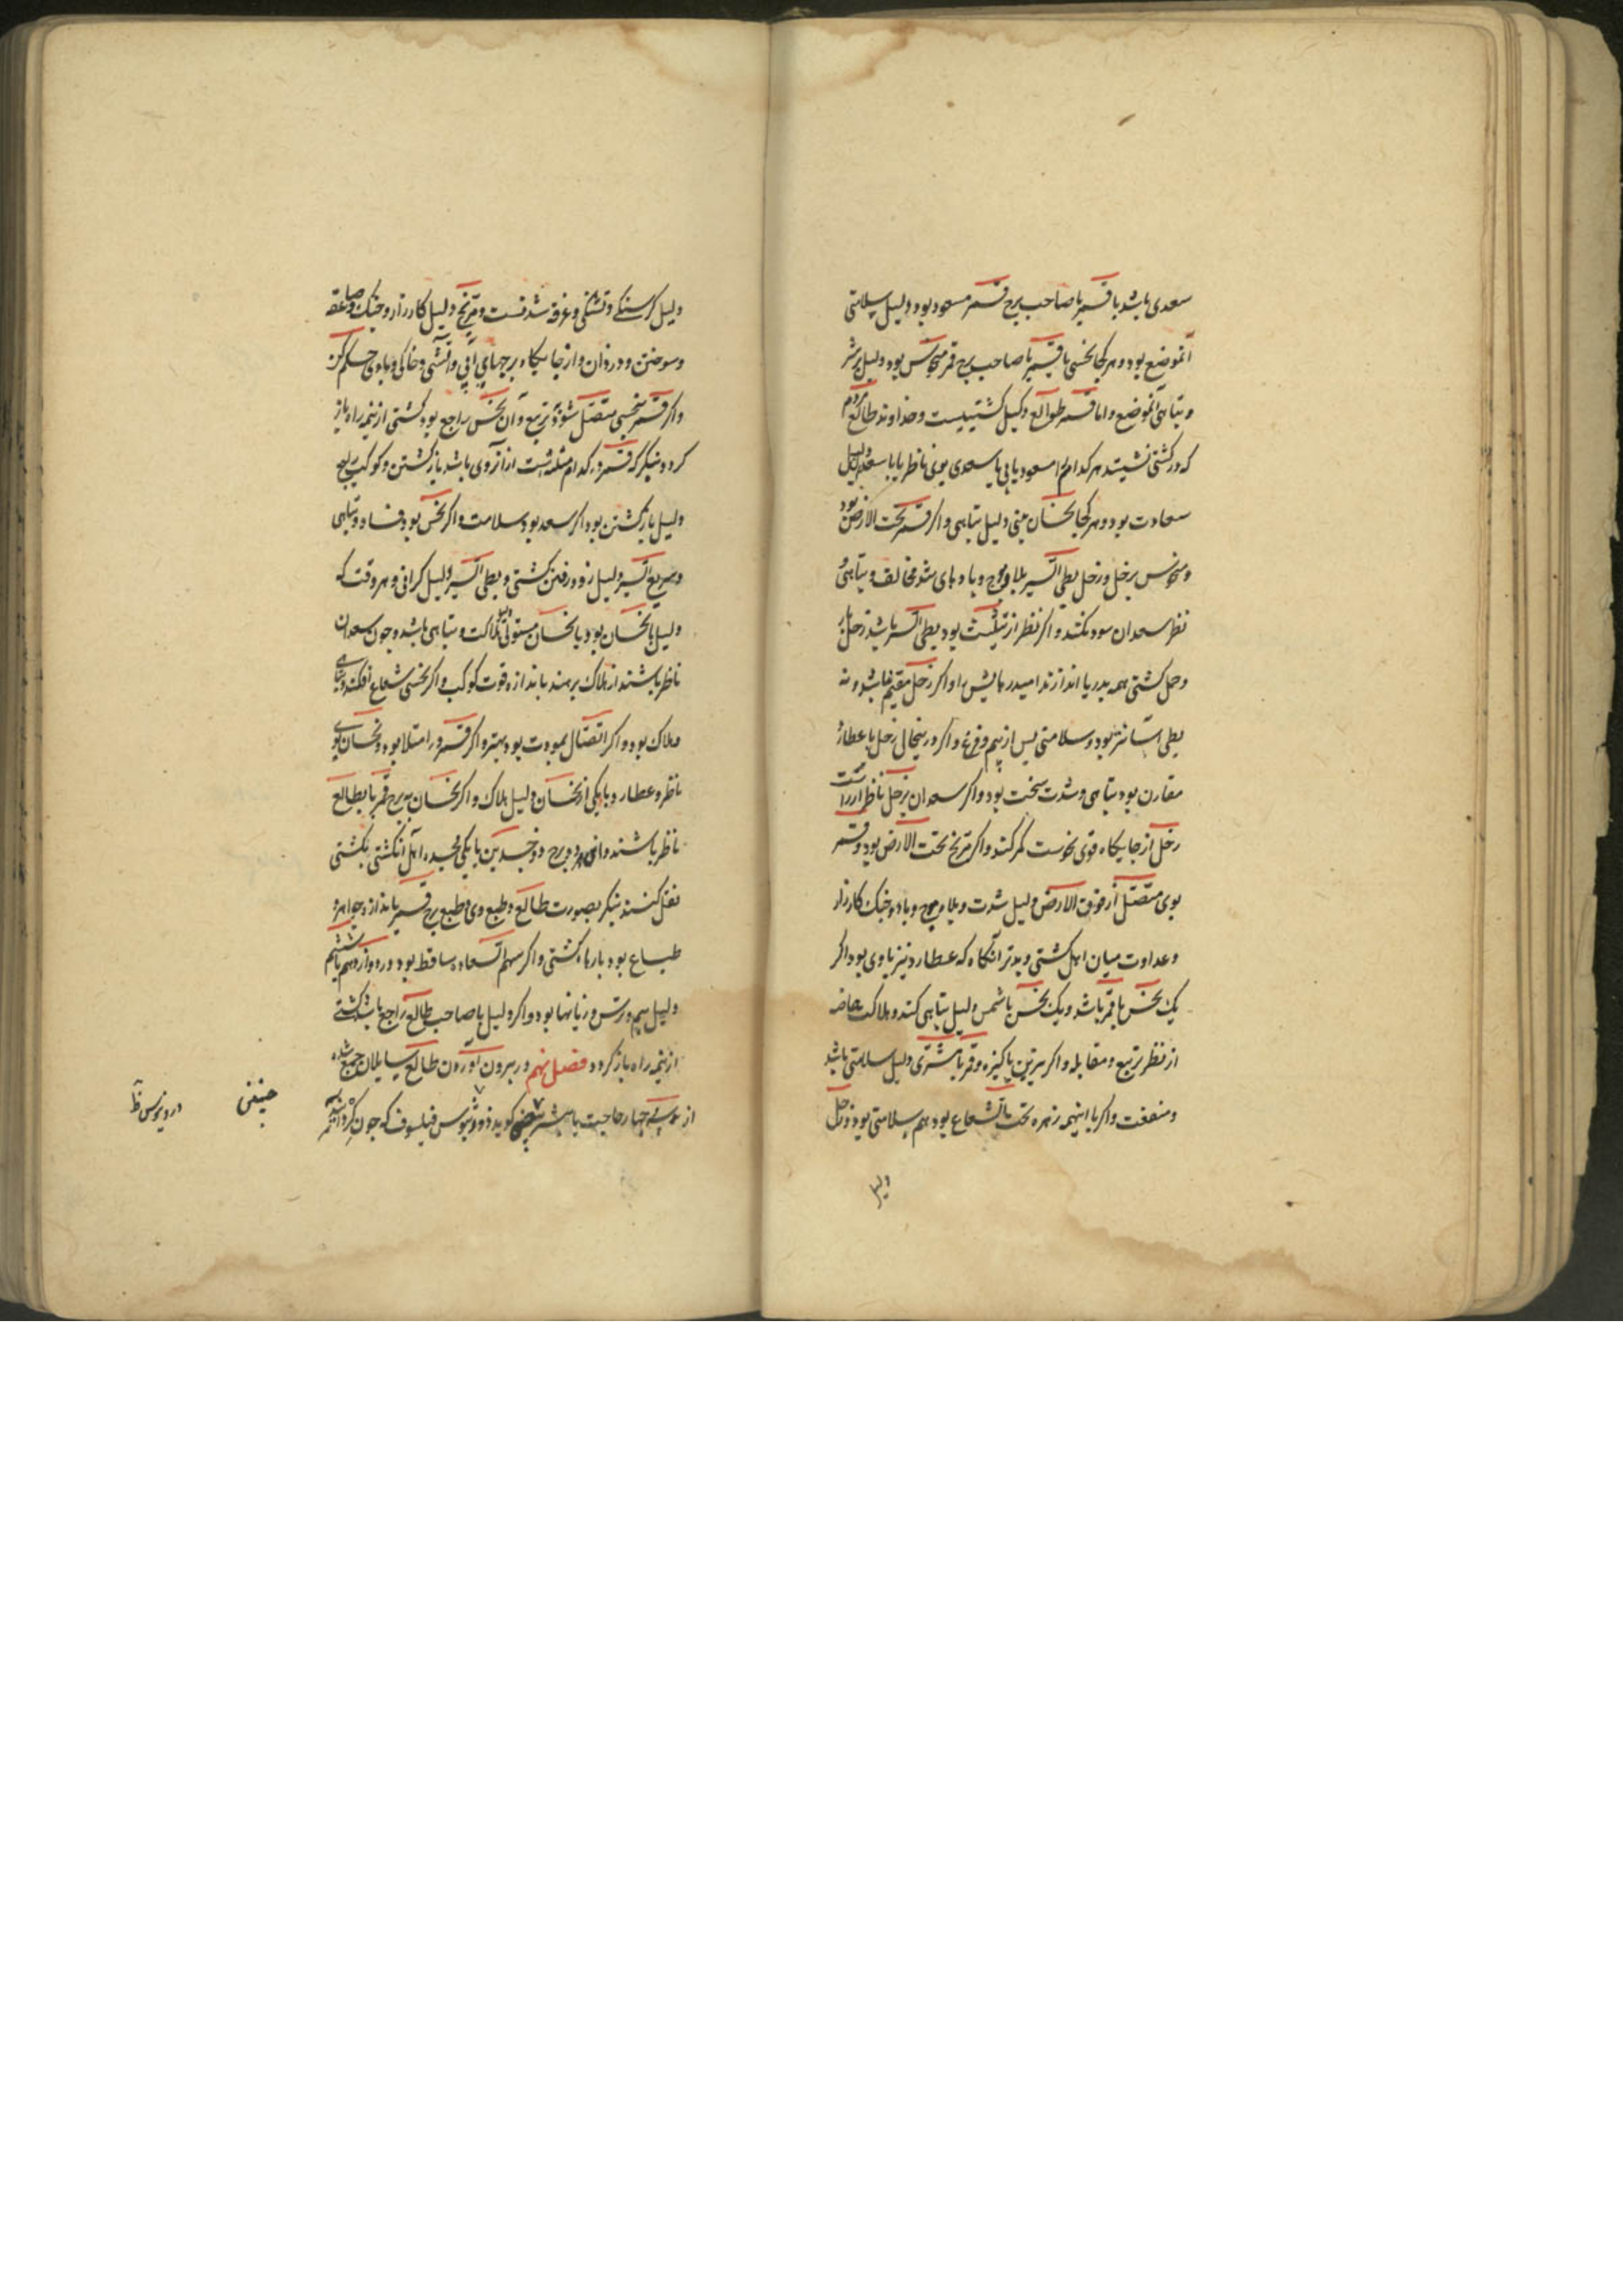 سعدی باشد با قمر یا صاحب برج قمر مسعود بود دلیل سلامتی
آنموضع بود و هر کجا نحسی با قمر یا صاحب برج قمر منحوس بود دلیل بر شر
و تباهی آنموضع و اما قمر طوالع دلیل کشتیست و خداوند طالع مردم
که در کشتی نشینند هر کدام را مسعود یابی یا سعدی بوی ناظر یا با سعد دلیل
سعادت بود و هر کجا نحسان بینی دلیل تباهی و اگر قمر تحت الارض بود
و منحوس بزحل و زحل بطی السیر بلا و موج و بادهای شد مخالف و تباهی
نظر سعدان سود نکند و اگر نظر از تثلیث بود بطی السیر باشد زحل
و حمل کشتی همه بدریا اندازند امید رهایش را و اگر زحل مقیم نباشد و نه
بطی آسانتر بود و سلامتی پس از بیم و فزع و اگر درینحال زحل با عطارد
مقارن بود تباهی و شدت سخت بود و اگر سعدان بزحل ناظر
زحل از جایگاه قوی نحوست کمر کند و اگر مریخ تحت الارض بود و قمر
بوی متصل از فوق الارض دلیل شدت و بلا و موج و باد و جنگ کارزار
و عداوت میان اهل کشتی و بدتر آنگاه که عطارد نیز باوی بود اگر
یک نحس با قمر باشد و یک نحس با شمس دلیل تباهی کند و هلاکت خاصه
از نظر تربیع و مقابله و اگر نیرین پاکیزه و قمر با مشتری دلیل سلامتی باشد
و منفعت و اگر با اینهمه زهره تحت الشعاع بود هم سلامتی بود و زحل
دلیل
دلیل گرسنگی و تشنگی و غرقه شدنست و مریخ دلیل کارزار و جنگ و صاعقه
و سوختن و دزدان و از جایگاه برجهای آبی و آتشی و خاکی و بادی حکم کن
و اگر قمر بنحسی متصل شود بتربیع و آن نحس راجع بود کشتی از نیمه راه باز
گردد و بنگر که قمر در کدام مثلثه است از آنروی باشد بازگشتن و کوکب راجع
دلیل بازگشتن بود اگر سعد بود سلامت و اگر نحس بود فساد و تباهی
و سریع السیر دلیل زود رفتن کشتی و بطی السیر دلیل گرانی و هر وقت که
دلیل با نحسان بود یا نحسان مستولی هلاکت و تباهی باشد و چون سعدان
ناظر باشند از هلاک برهند باندازه قوت کوکب و اگر نحسی شعاع افکند
هلاک بود و اگر اتصال بمودت بود بهتر و اگر قمر در امتلا بود و نحسان بوی
ناظر و عطارد با یکی از نحسان دلیل هلاک و اگر نحسان ببرج قمر یا بطالع
ناظر باشند و آن دو برج ذو جسدین با یکی ذو جسد اهل آنکشتی بکشتی
نقل کنند بنگر بصورت طالع و طبع وی و طبع برج قمر باندازه جواهر و
طباع بود بارهاء کشتی و اگر سهم السعاده ساقط بود در دوازدهم یا ششم
دلیل بیم و ترس و زیانها بود و اگر دلیل یا صاحب طالع راجع باشد کشتی
از نیمه راه باز گردد فصل نهم در بیرون آوردن طالع مسایلان جمع شده
از سه چهار حاجت یا بیشتر چنین گوید ذوروثیوس فیلسوف که چون
چنینی
دروثیوس ظ